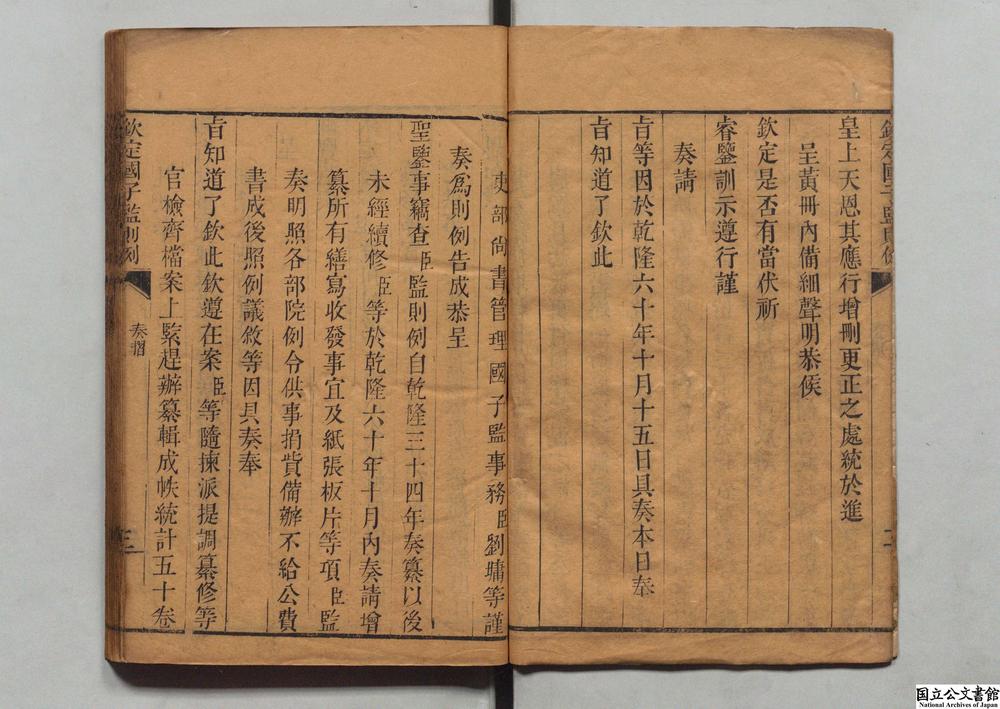 欽定國子監則例
皇上天恩其應行增刪更正之處統於進
呈黃冊內備細聲明恭候
欽定是否有當伏祈
睿鑒訓示遵行謹
奏請
旨等因於乾隆六十年十月十五日具奏本日奉
旨知道了欽此
吏部尙書管理國子監事務臣劉墉等謹
奏爲則例告成恭呈
聖鑒事竊查臣監則例自乾隆三十四年奏纂以後
未經續修臣等於乾隆六十年十月內奏請增
纂所有繕寫收發事宜及紙張板片等項臣監
奏明照各部院例令供事捐貲備辦不給公費
書成後照例議敘等因具奏奉
旨知道了欽此欽遵在案臣等隨揀派提調纂修等
官檢齊檔案上緊趕辦纂輯成帙統計五十卷
欽定國子監則例
奏摺
三
国立公文書館
National Archives of Japan